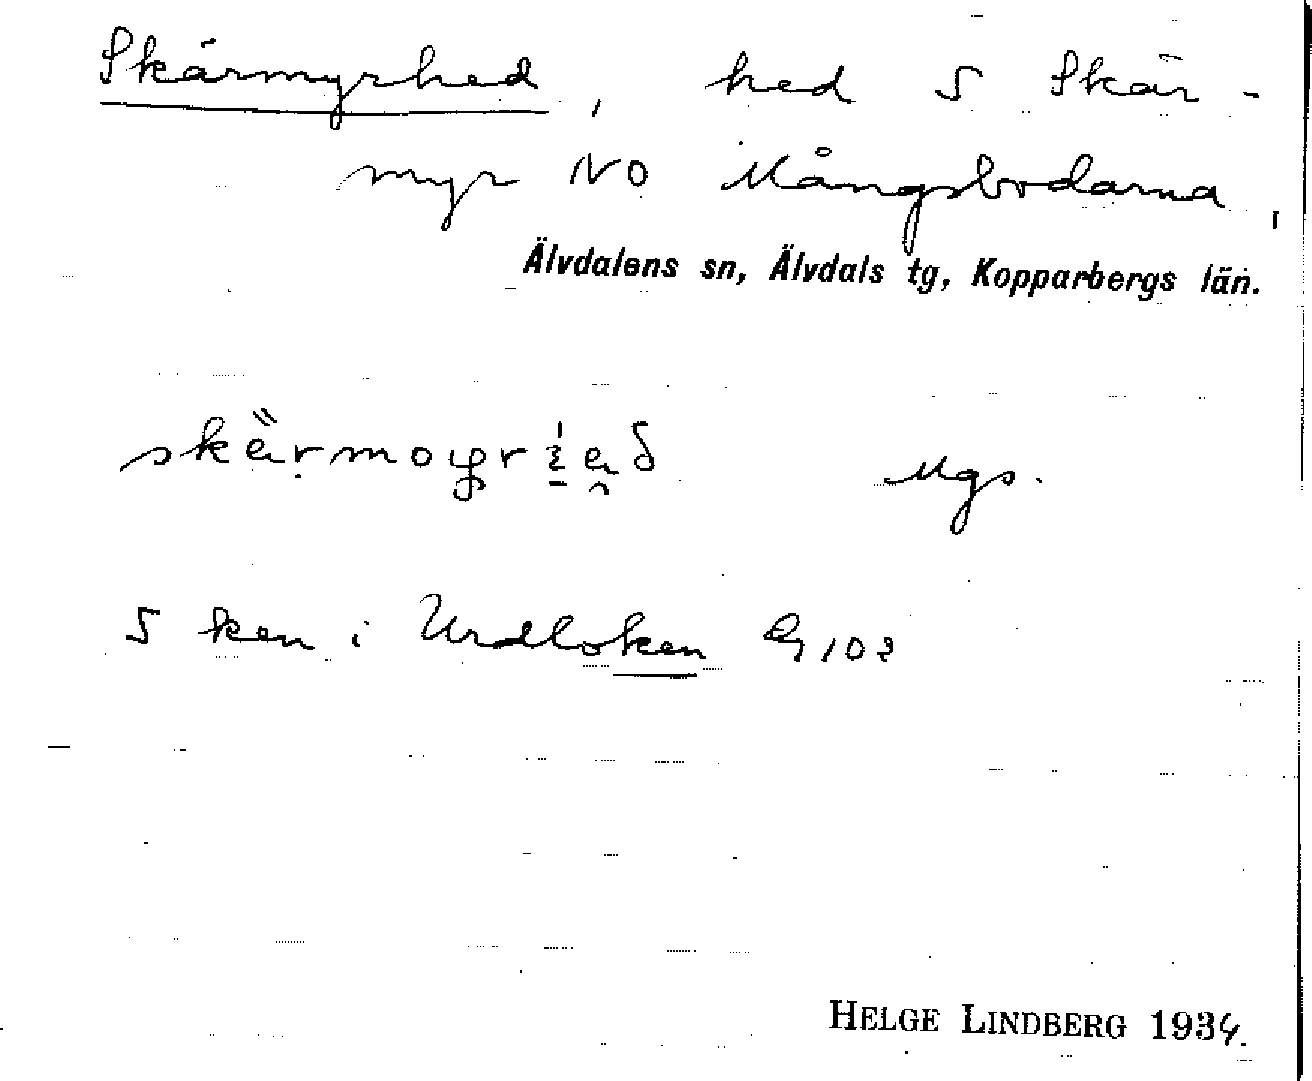 Skärmyrhed, hed S Skär-
myr NO Mångsbodarna,
Älvdalens sn, Älvdals tg, Kopparbergs län.
Mgs.
S ken i Urdloken G 102
HELGE LINDBERG 1934.